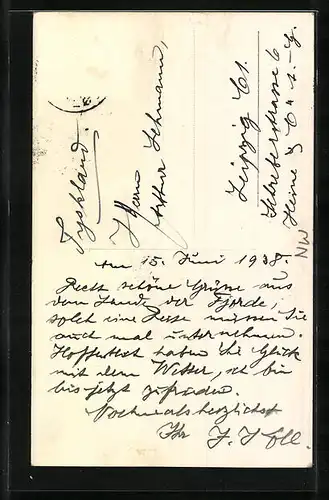 Tyskland.
Herrn
Arthur Lehmann,
Leipzig C1.
Schreberstrasse 6
Heine & Co A.-G.
NW
Am 15. Juni 1938.
Recht schöne Grüsse aus
dem Lande der Fjorde,
solch eine Reise müssen Sie
auch mal unternehmen.
Hoffentlich haben Sie Glück
mit dem Wetter, ich bin
bis jetzt zufrieden.
Nochmals herzlichst
Ihr